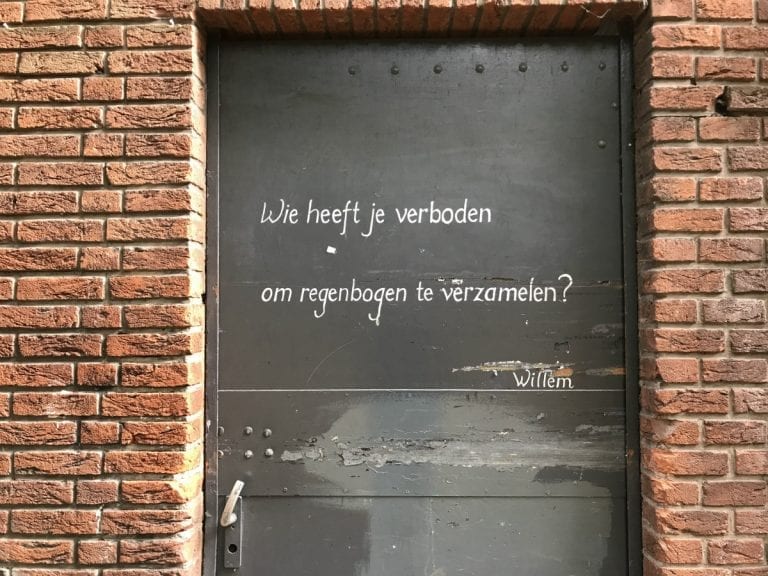 Wie heeft je verboden
om regenbogen te verzamelen?
Willem